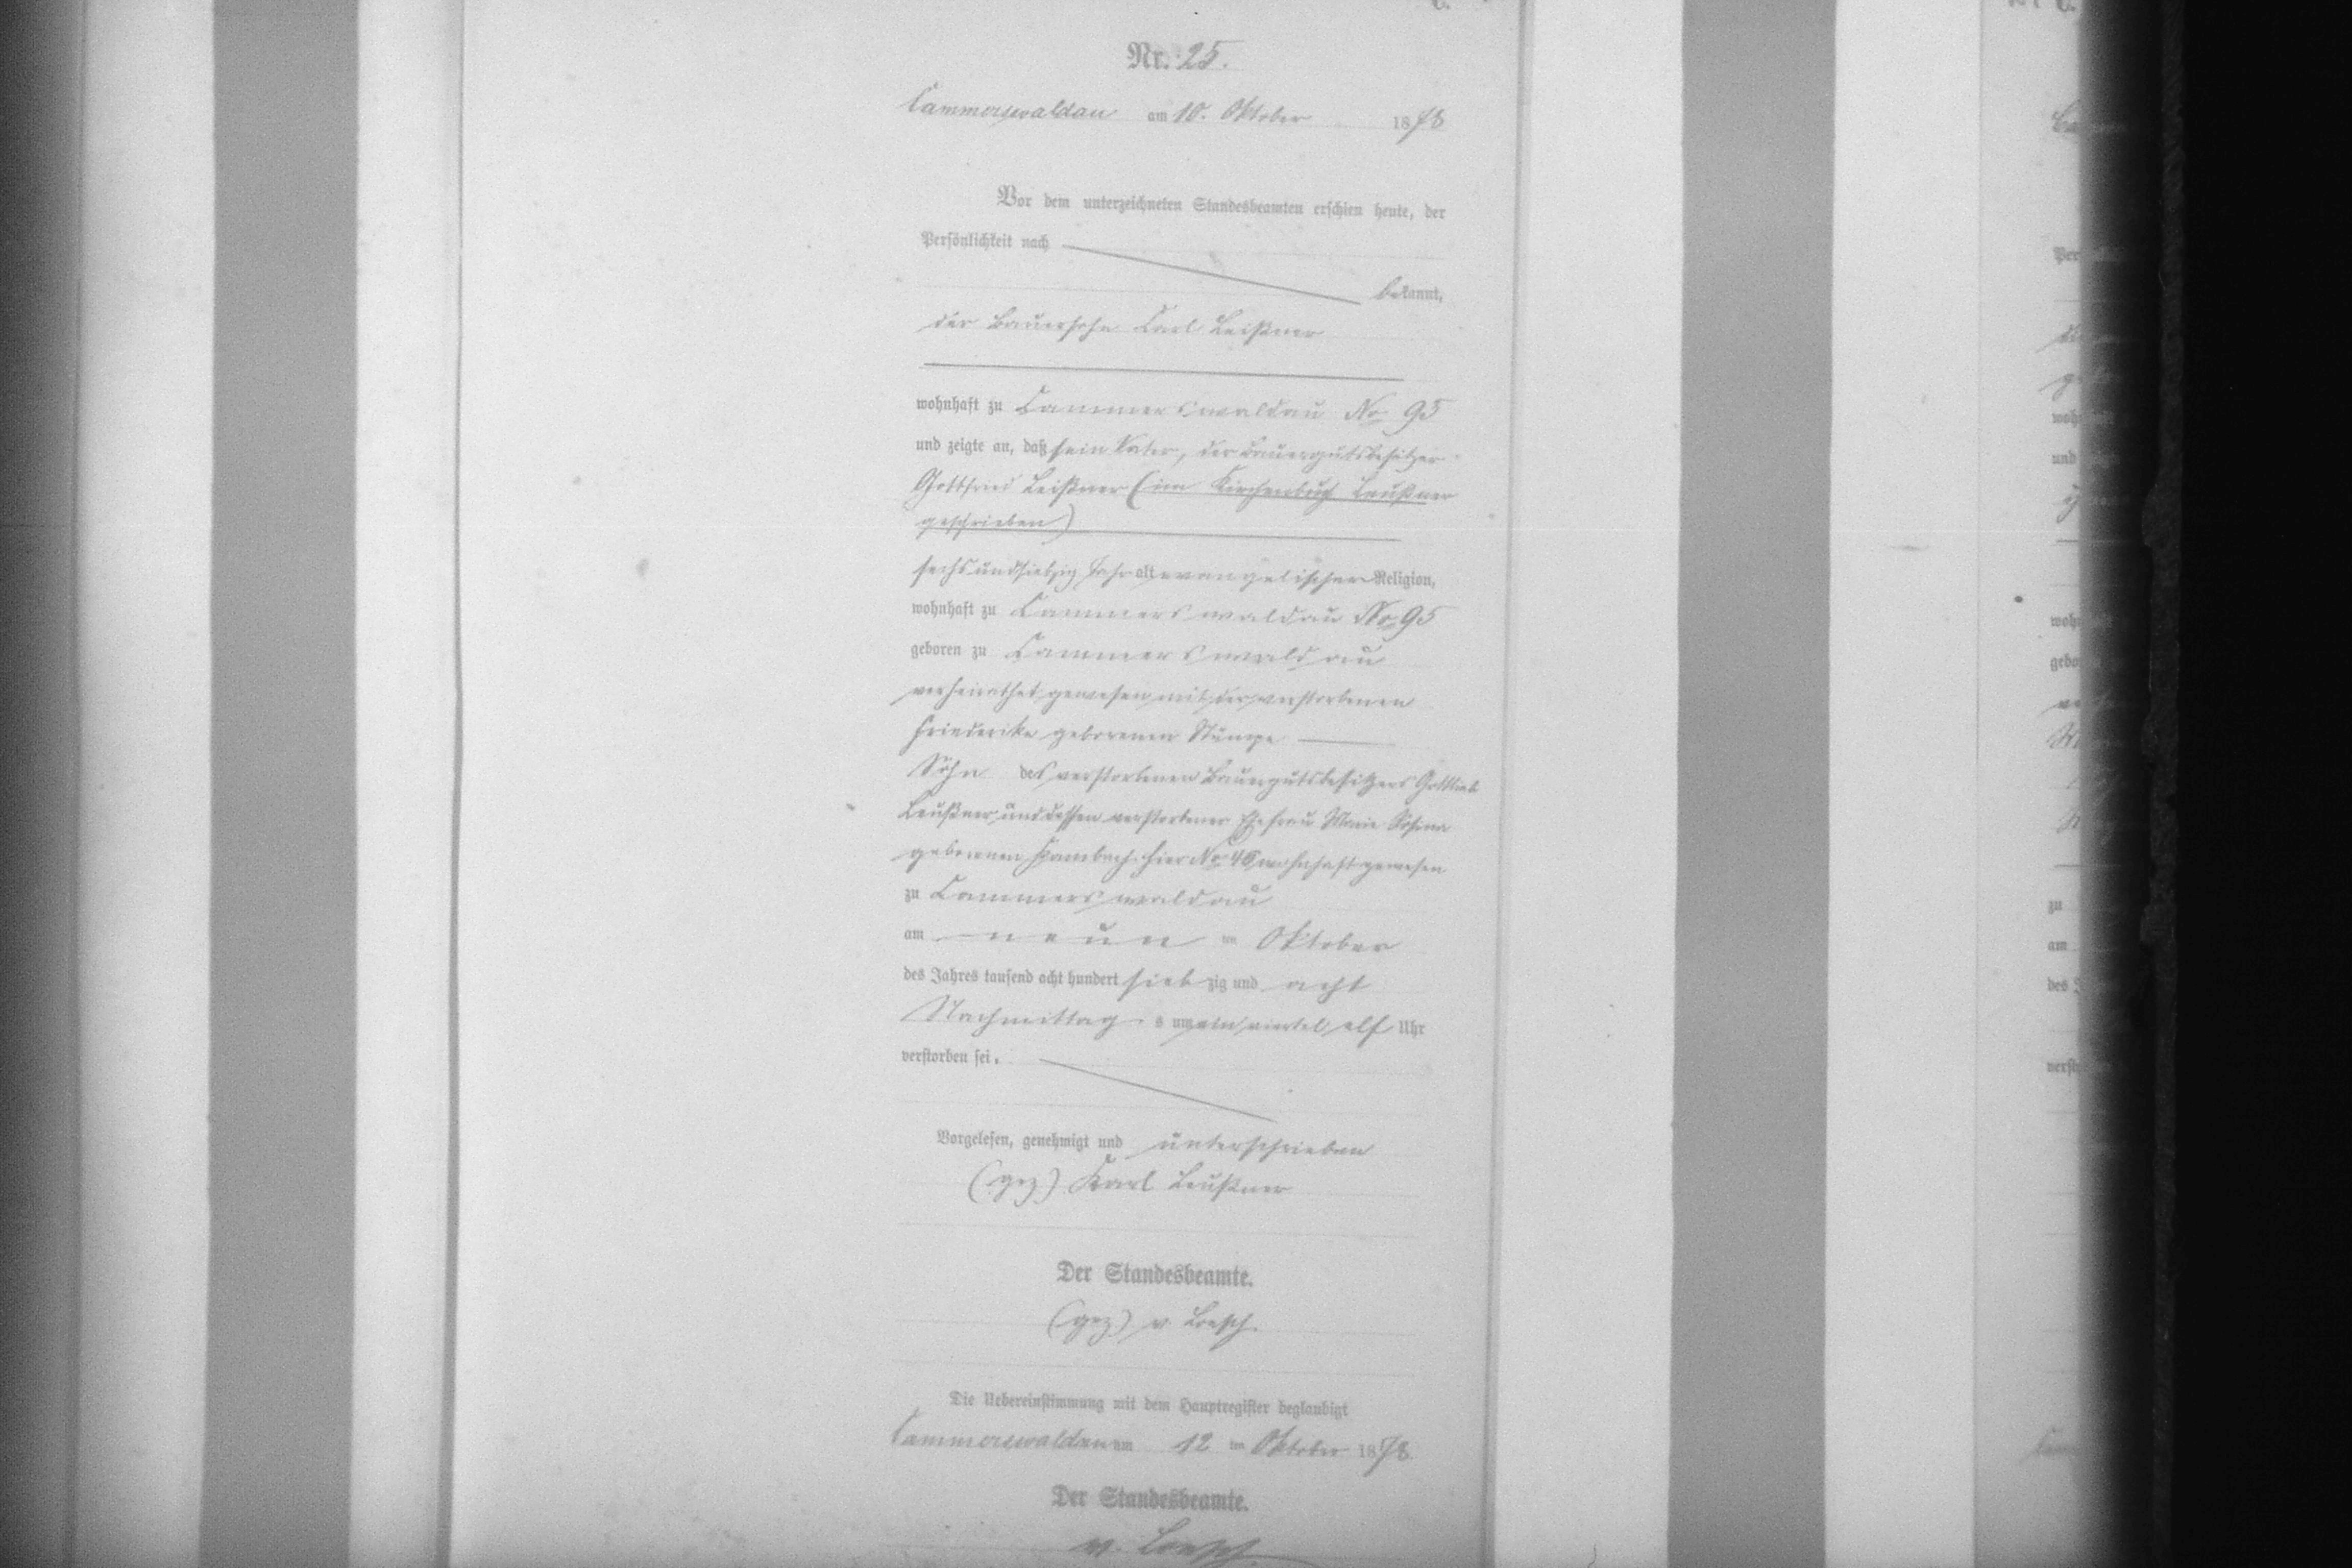 Nr. 25.
Cammerswaldau am 10. Oktober 1878
Vor dem unterzeichneten Standesbeamten erschien heute, der
Persönlichkeit nach
bekannt,
der Bauersohn Carl Leißner
wohnhaft zu Cammerswaldau No 95
und zeigte an, daß sein Vater, der Bauergutsbesitzer
Gottfried Leißner (im Kirchenbuch Leußner
geschrieben)
sechsundsiebzig Jahr alt evangelischer Religion,
wohnhaft zu Cammerswaldau No 95
geboren zu Cammerswaldau
verheirathet gewesen mit der verstorbenen
Friederike geborenen Stumpe
Sohn des verstorbenen Bauergutsbesitzers Gottlieb
Leußner und dessen verstorbener Ehefrau Marie Rosina
geborenen hier No 46 wohnhaft gewesen
zu Cammerswaldau
am neun ten Oktober
des Jahres tausend acht hundert siebzig und acht
Nachmittag s um ein viertel elf Uhr
verstorben sei.
Vorgelesen, genehmigt und unterschrieben
(gez) Karl Leußner
Der Standesbeamte.
(gez) v. Loesch.
Die Uebereinstimmung mit dem Hauptregister beglaubigt
Cammerswaldau am 12 ten Oktober 1878.
Der Standesbeamte.
v. Loesch.